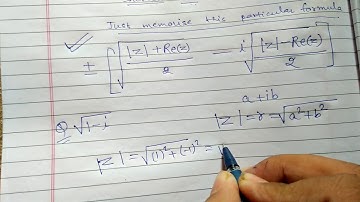 Just memorise this particular formula
± [ √((|z| + Re(z))/2) - i √((|z| - Re(z))/2) ]
a + ib
Q √1-i |z| = r = √a² + b²
|z| = √(1)² + (-1)² =